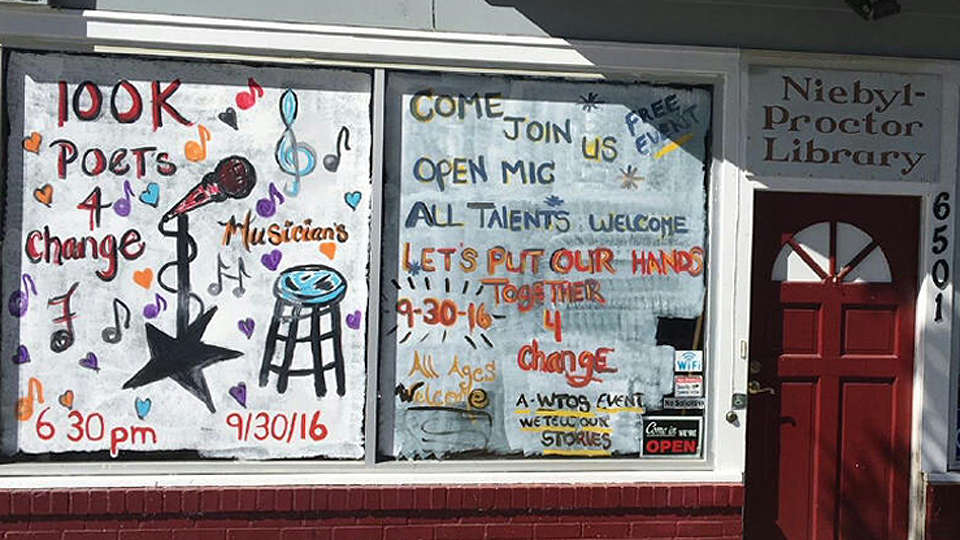 100K
POETS
4
Change
Musician's
6 30 pm
9/30/16
COME
JOIN US
FREE
EVENT
OPEN MIC
ALL TALENTS WELCOME
LET'S PUT OUR HANDS
TOGETHER
9-30-16
4
Change
All Ages
Welcome
A-WTOS EVENT
WE TELL OUR
STORIES
WiFi
No Soliciting
Come in WE'RE
OPEN
Niebyl-
Proctor
Library
6501